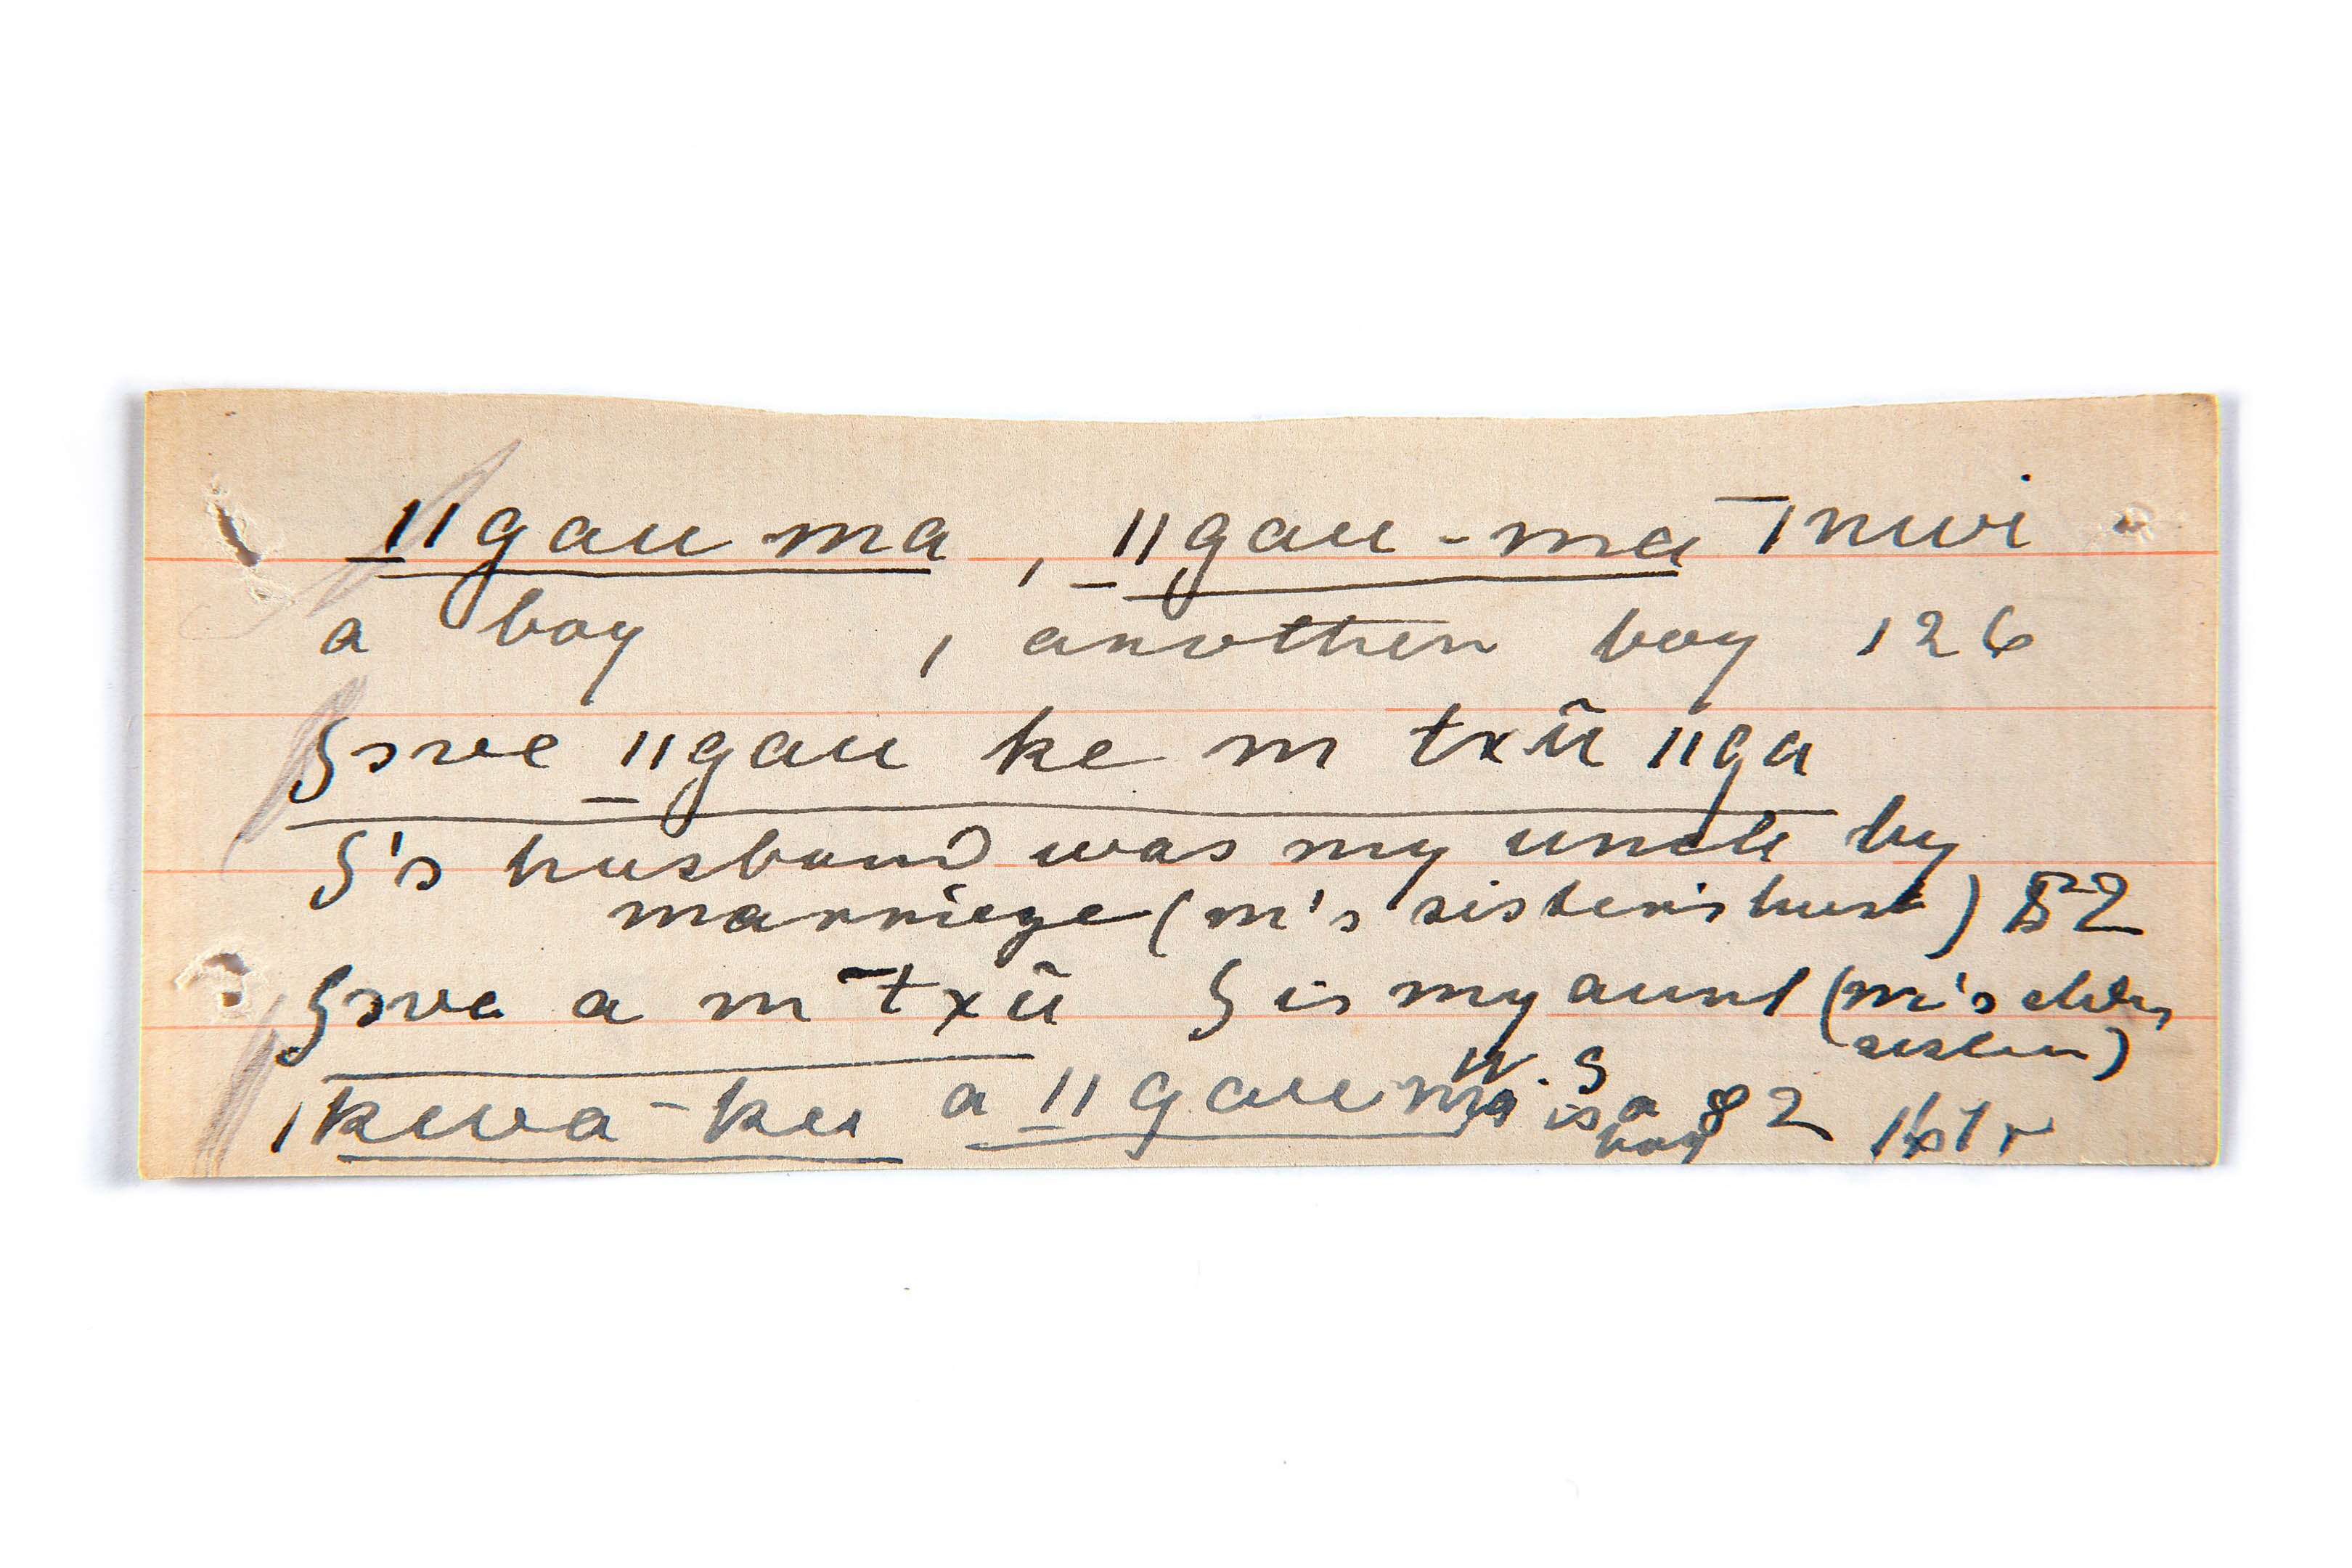 ǁgau ma , ǁgau-ma ǀnwi
a boy , another boy 126
ʒsve ǁgau ke m txũ ǁga
ʒ's husband was my uncle by
marriege (m's sister's husb) 82
ʒsve a m txũ ʒ is my aunt (m's elder
sister)
ǀkuva-ku a ǁgau ma is a boy 82